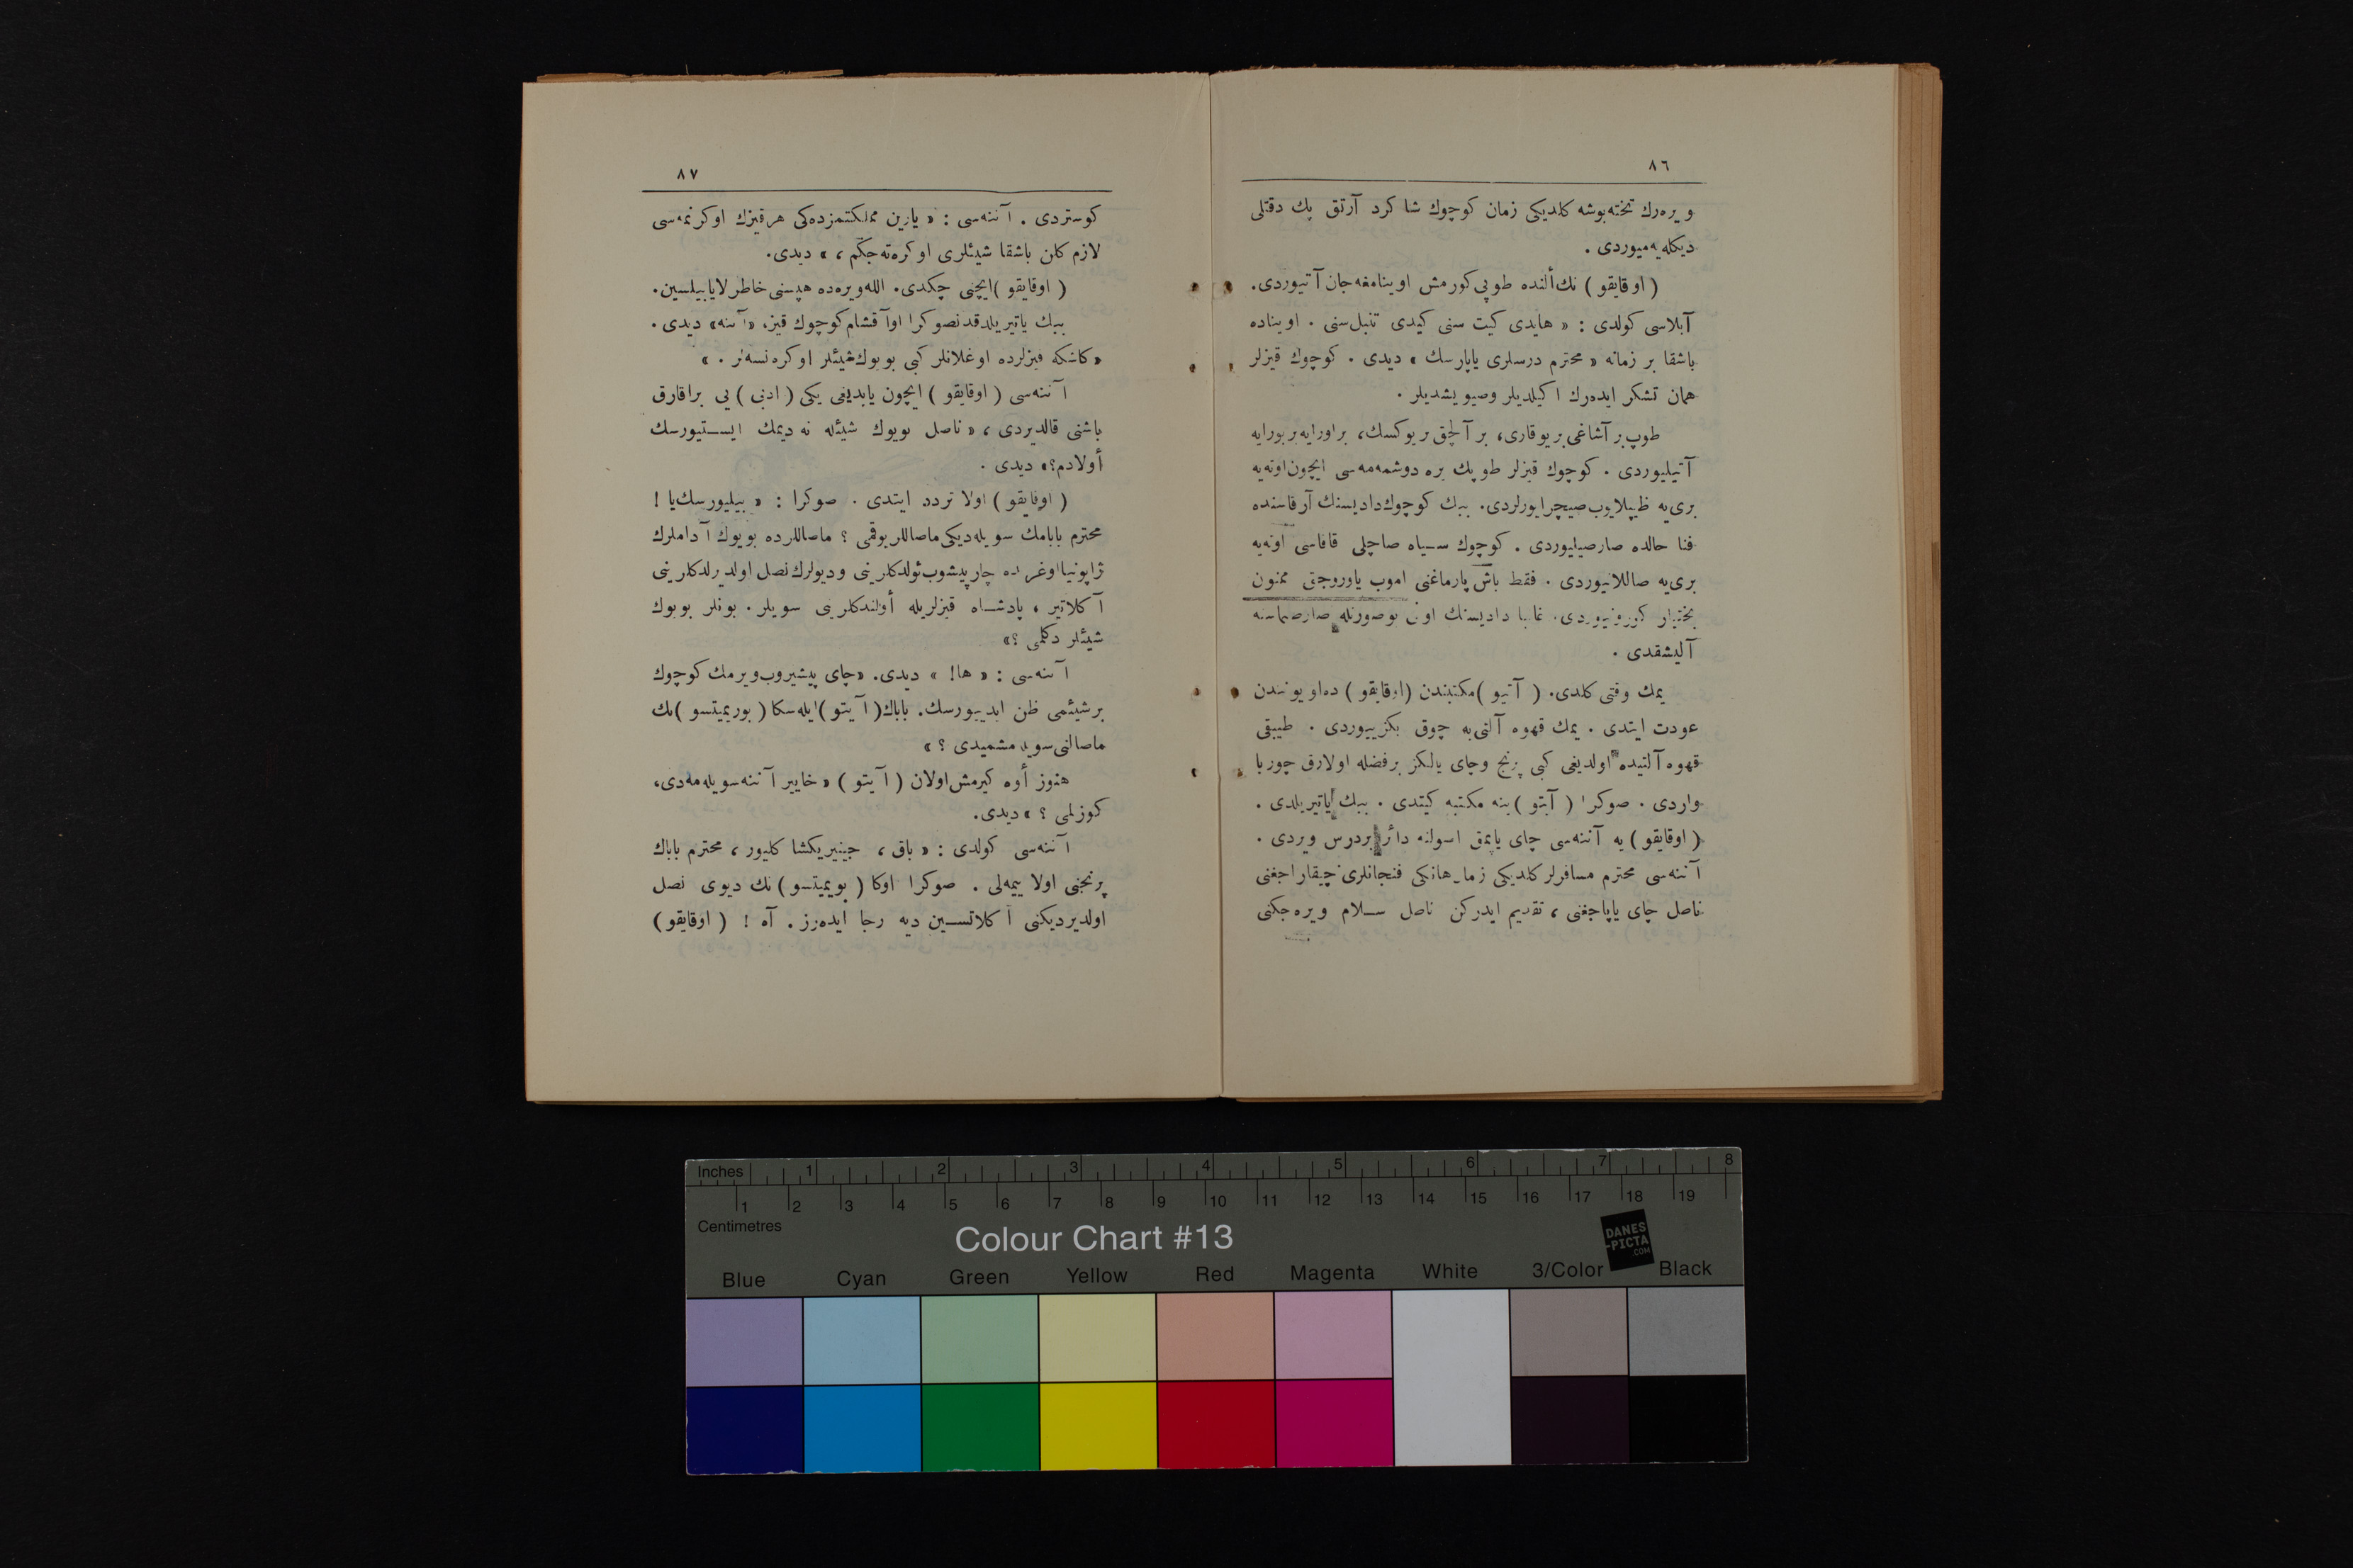 ٨٦
ویره‌رك تخته‌بوشه كلدیكی زمان كوچوك شا كرد آرتق پك دقتلی
دیكله‌یه‌میوردی .
( اوقایقو ) نك ألنده طوپی كورمش اوینامغه جان آتیوردی.
آبلاسی كولدی : « هایدی كیت سنی كیدی تنبل سنی . اویناده
باشقا بر زمانه « محترم درسلری یاپارسك » دیدی . كوچوك قیزلر
همان تشكر ایده‌رك اكیلدیلر وصیویشدیلر .
طوپ بر آشاغی بر یوقاری، بر آلچق بر یوكسك، بر اورایه بر بورایه
آتیلیوردی . كوچوك قیزلر طوپك یره دوشمه‌مه‌سی ایچون اوته‌یه
بری‌یه ظیپلایوب صیچرایورلردی. ببك كوچوك دادیسنك آرقاسنده
فنا حالده صارصیلیوردی . كوچوك سیاه صاچلی قافاسی اوته‌یه
بری‌یه صاللانیوردی . فقط باش پارماغنی اموب یاوروجق ممنون
بختیار كورونیوردی. غالبا دادیسنك اونی بوصورتله صارصماسنه
آلیشقدی .
یمك وقتی كلدی. ( آتیو ) مكتبندن (اوقایقو ) ده اویوندن
عودت ایتدی . یمك قهوه آلتی‌یه چوق بكزییوردی . طبیقی
قهوه آلتیده اولدیغی كبی پرنج وچای یالكز برفضله اولارق چوربا
واردی . صوكرا ( آیتو ) ینه مكتبه كیتدی . ببك یاتیریلدی .
( اوقایقو ) یه آننه‌سی چای یاپمق اسولنه دائر بردرس ویردی .
آننه‌سی محترم مسافرلر كلدیكی زمان هانكی فنجانلری چیقاراجغنی
ناصل چای یاپاجغنی ، تقدیم ایدركن ناصل سلام ویره‌جكنی
٨٧
كوستردی . آننه‌سی : « یارین مملكتمزده‌كی هرقیزك اوكرنمه‌سی
لازم كلن باشقا شیئلری اوكره‌ته‌جكم ، » دیدی.
( اوقایقو ) ایچنی چكدی. الله ویره‌ده هپسنی خاطرلایابیلسین.
ببك یاتیریلدقدنصوكرا اوآقشام كوچوك قیز، « آننه » دیدی .
« كاشكه قیزلرده اوغلانلر كبی بویوك شیئلر اوكره‌نسه‌لر . »
آننه‌سی ( اوقایقو ) ایچون یابدیغی یكی ( ادبی ) یی براقارق
باشنی قالدیردی ، « ناصل بویوك شیئله نه دیمك ایستیورسك
أولادم؟ » دیدی .
( اوقایقو ) اولا تردد ایتدی . صوكرا : « بیلیورسك یا !
محترم بابامك سویله‌دیكی ماصاللریوقمی ؟ ماصاللرده بویوك آداملرك
ژاپونیا اوغرنده چارپیشوب ئولدكلرینی ودیولرك نصل اولدیرلدكلرینی
آكلاتیر ، پادشاه قیزلریله أولندكلرینی سویلر. بونلر بویوك
شیئلر دكلمی ؟»
آننه‌سی : « ها! » دیدی. «چای پیشیروب ویرمك كوچوك
برشیئمی ظن ایدییورسك. باباك ( آیتو ) ایله سكا ( یوریمیتسو ) نك
ماصالنی سویله‌مشمیدی ؟ »
هنوز أوه كیرمش اولان ( آیتو ) « خاییر آننه سویله‌مه‌دی،
كوزلمی ؟ » دیدی.
آننه‌سی كولدی : « باق ، جینیریكشا كلیور ، محترم باباك
پرنجنی اولا ییمه‌لی . صوكرا اوكا ( یویمیتسو ) نك دیوی نصل
اولدیردیكنی آكلاتسین دیه رجا ایده‌رز . آه ! ( اوقایقو )
Inches 1 2 3 4 5 6 7 8
1 2 3 4 5 6 7 8 9 10 11 12 13 14 15 16 17 18 19
Centimetres
Colour Chart #13
DANES
-PICTA
.COM
Blue Cyan Green Yellow Red Magenta White 3/Color Black